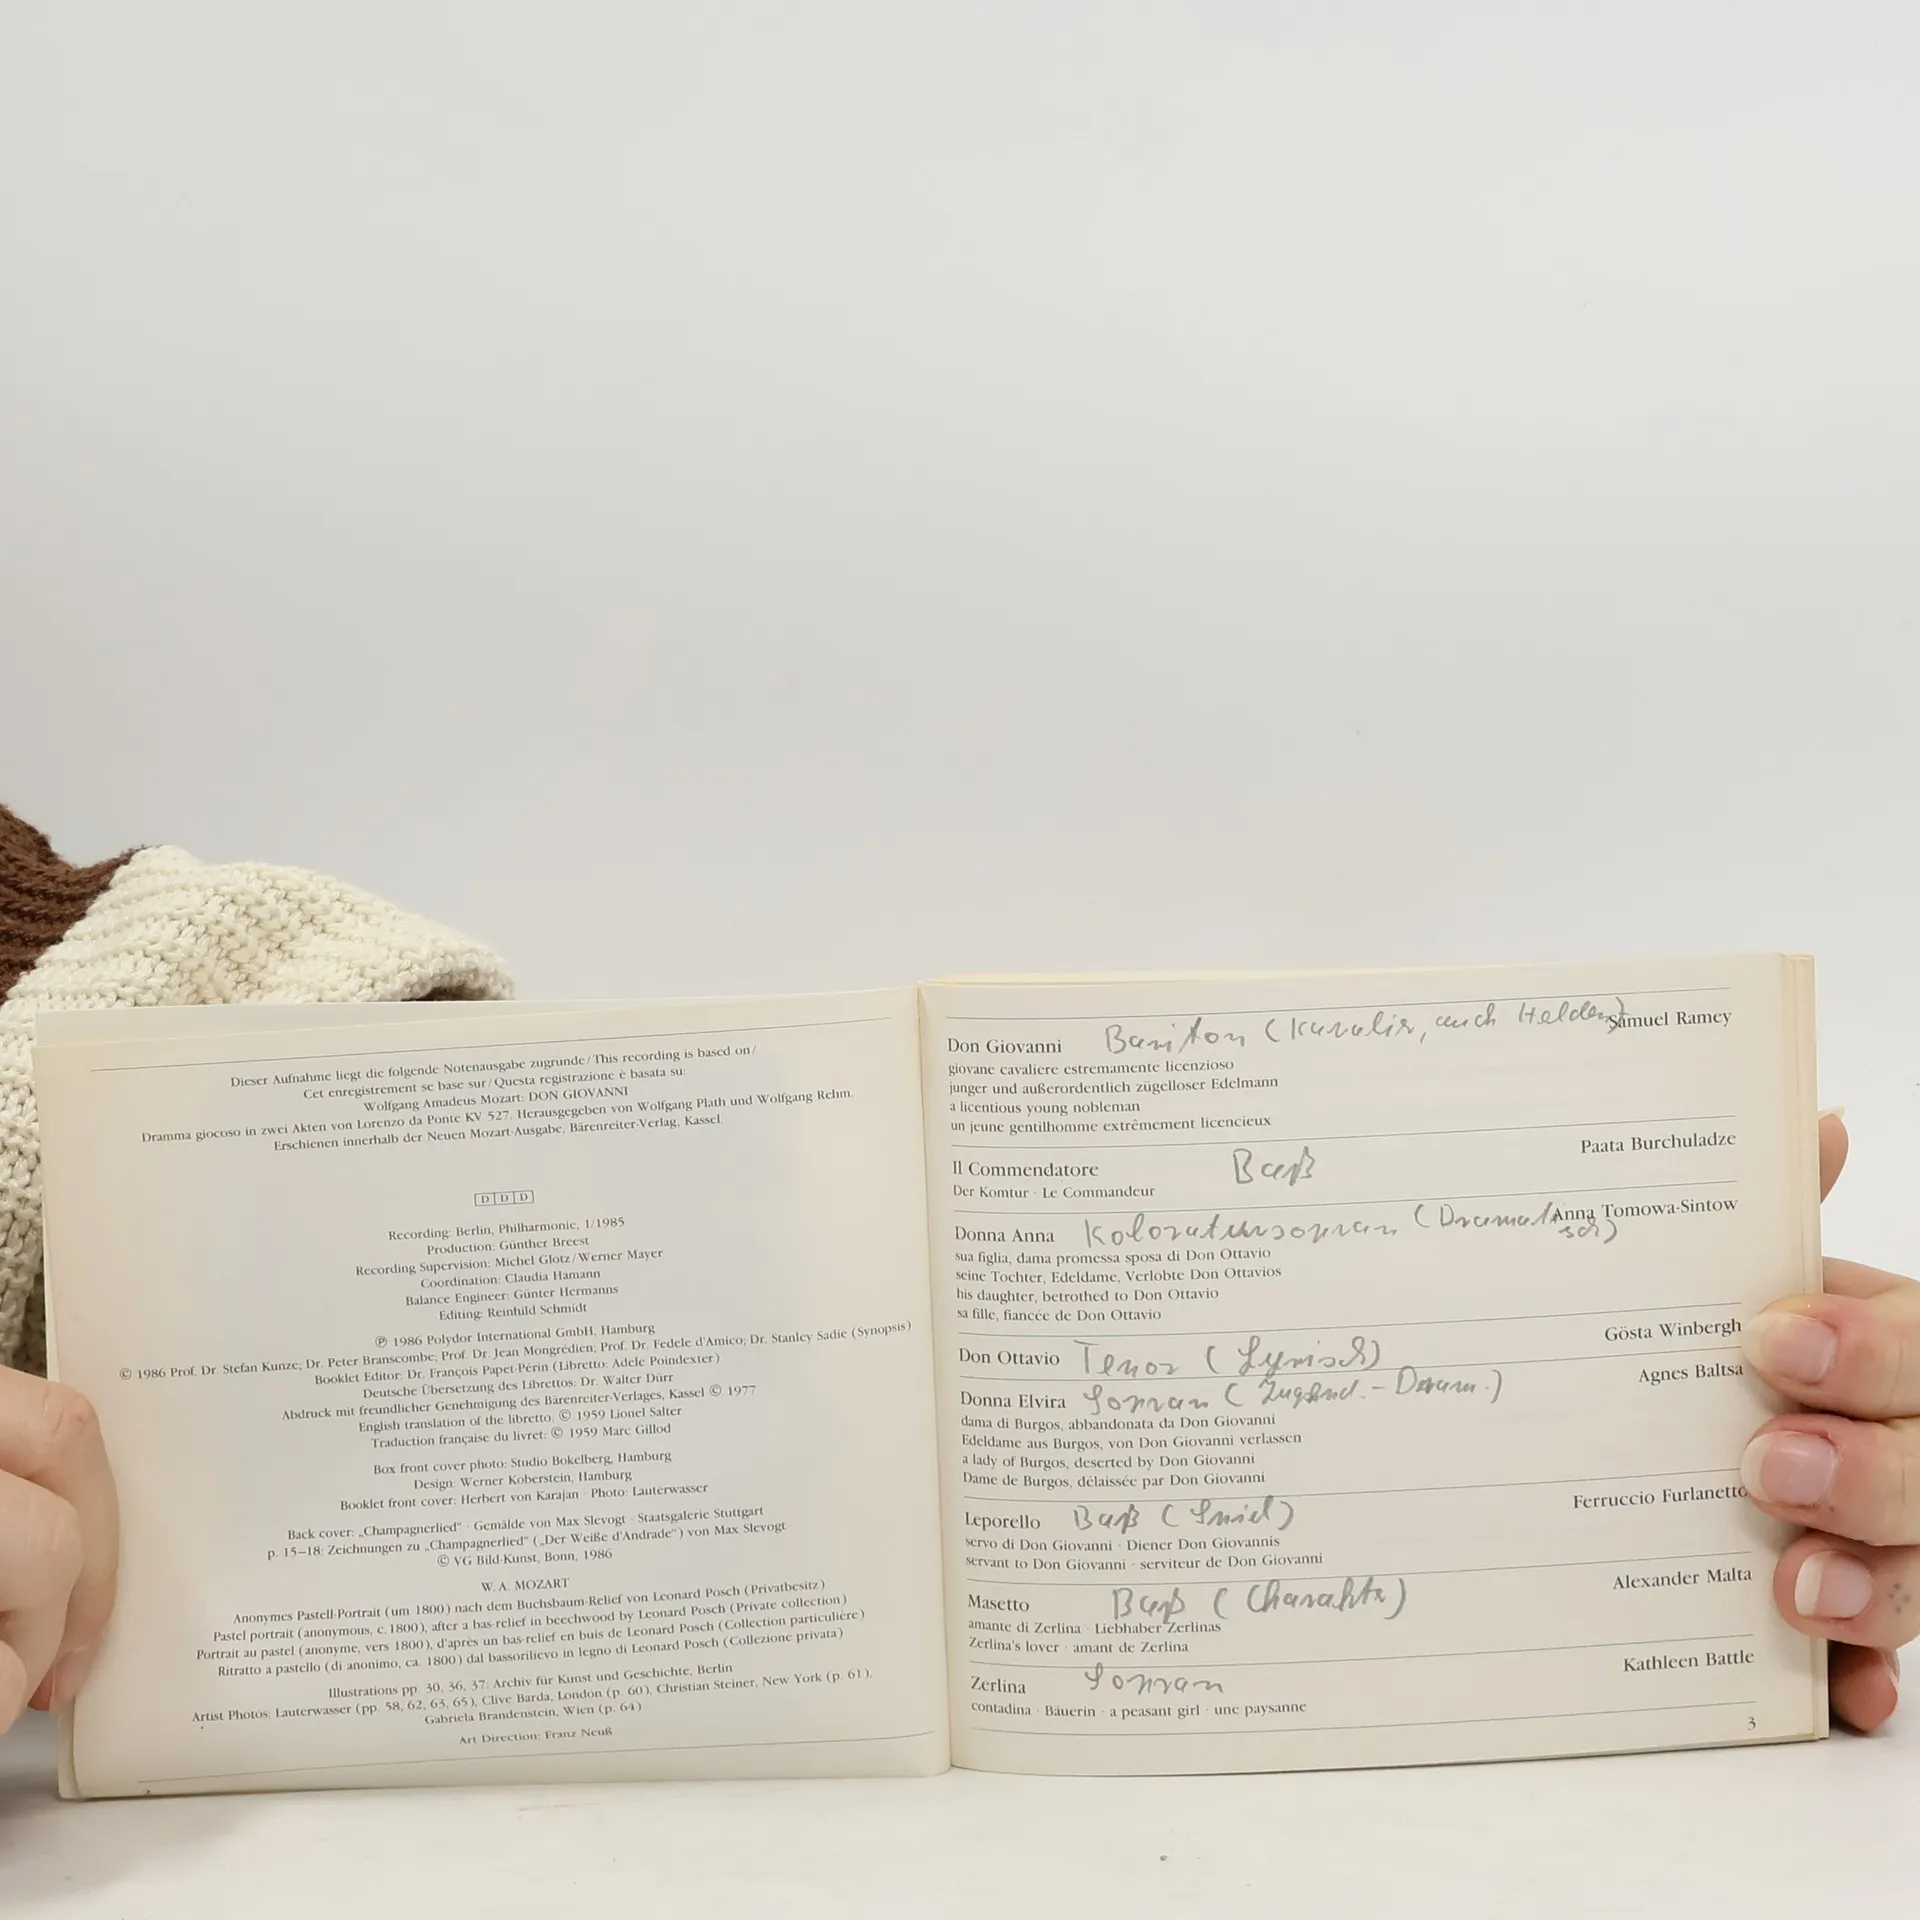 Dieser Aufnahme liegt die folgende Notenausgabe zugrunde/This recording is based on/
Cet enregistrement se base sur/Questa registrazione è basata su:
Wolfgang Amadeus Mozart: DON GIOVANNI
Dramma giocoso in zwei Akten von Lorenzo da Ponte KV 527. Herausgegeben von Wolfgang Plath und Wolfgang Rehm.
Erschienen innerhalb der Neuen Mozart-Ausgabe, Bärenreiter-Verlag, Kassel.
DDD
Recording: Berlin, Philharmonic, 1/1985
Production: Günther Breest
Recording Supervision: Michel Glotz/Werner Mayer
Coordination: Claudia Hamann
Balance Engineer: Günter Hermanns
Editing: Reinhild Schmidt
Ⓟ 1986 Polydor International GmbH, Hamburg
© 1986 Prof. Dr. Stefan Kunze; Dr. Peter Branscombe; Prof. Dr. Jean Mongrédien; Prof. Dr. Fedele d'Amico; Dr. Stanley Sadie (Synopsis)
Booklet Editor: Dr. François Papet-Périn (Libretto: Adele Poindexter)
Deutsche Übersetzung des Librettos: Dr. Walter Dürr
Abdruck mit freundlicher Genehmigung des Bärenreiter-Verlages, Kassel © 1977
English translation of the libretto: © 1959 Lionel Salter
Traduction française du livret: © 1959 Marc Gillod
Box front cover photo: Studio Bokelberg, Hamburg
Design: Werner Koberstein, Hamburg
Booklet front cover: Herbert von Karajan · Photo: Lauterwasser
Back cover: „Champagnerlied“ · Gemälde von Max Slevogt · Staatsgalerie Stuttgart
p. 15–18: Zeichnungen zu „Champagnerlied“ („Der Weiße d'Andrade“) von Max Slevogt
© VG Bild-Kunst, Bonn, 1986
W. A. MOZART
Anonymes Pastell-Portrait (um 1800) nach dem Buchsbaum-Relief von Leonard Posch (Privatbesitz)
Pastel portrait (anonymous, c. 1800), after a bas-relief in beechwood by Leonard Posch (Private collection)
Portrait au pastel (anonyme, vers 1800), d'après un bas-relief en buis de Leonard Posch (Collection particulière)
Ritratto a pastello (di anonimo, ca. 1800) dal bassorilievo in legno di Leonard Posch (Collezione privata)
Illustrations pp. 30, 36, 37: Archiv für Kunst und Geschichte, Berlin
Artist Photos: Lauterwasser (pp. 58, 62, 63, 65), Clive Barda, London (p. 60), Christian Steiner, New York (p. 61),
Gabriela Brandenstein, Wien (p. 64)
Art Direction: Franz Neuß
Don Giovanni Bariton (Kavalir, auch Helden) Samuel Ramey
giovane cavaliere estremamente licenzioso
junger und außerordentlich zügelloser Edelmann
a licentious young nobleman
un jeune gentilhomme extrêmement licencieux
Il Commendatore Baß Paata Burchuladze
Der Komtur · Le Commandeur
Donna Anna Koloratursopran (Dramatisch) Anna Tomowa-Sintow
sua figlia, dama promessa sposa di Don Ottavio
seine Tochter, Edeldame, Verlobte Don Ottavios
his daughter, betrothed to Don Ottavio
sa fille, fiancée de Don Ottavio
Don Ottavio Tenor (Lyrisch) Gösta Winbergh
Donna Elvira Sopran (Jugend.-Dram.) Agnes Baltsa
dama di Burgos, abbandonata da Don Giovanni
Edeldame aus Burgos, von Don Giovanni verlassen
a lady of Burgos, deserted by Don Giovanni
Dame de Burgos, délaissée par Don Giovanni
Leporello Baß (Spiel) Ferruccio Furlanetto
servo di Don Giovanni · Diener Don Giovannis
servant to Don Giovanni · serviteur de Don Giovanni
Masetto Baß (Charakter) Alexander Malta
amante di Zerlina · Liebhaber Zerlinas
Zerlina's lover · amant de Zerlina
Zerlina Sopran Kathleen Battle
contadina · Bäuerin · a peasant girl · une paysanne
3